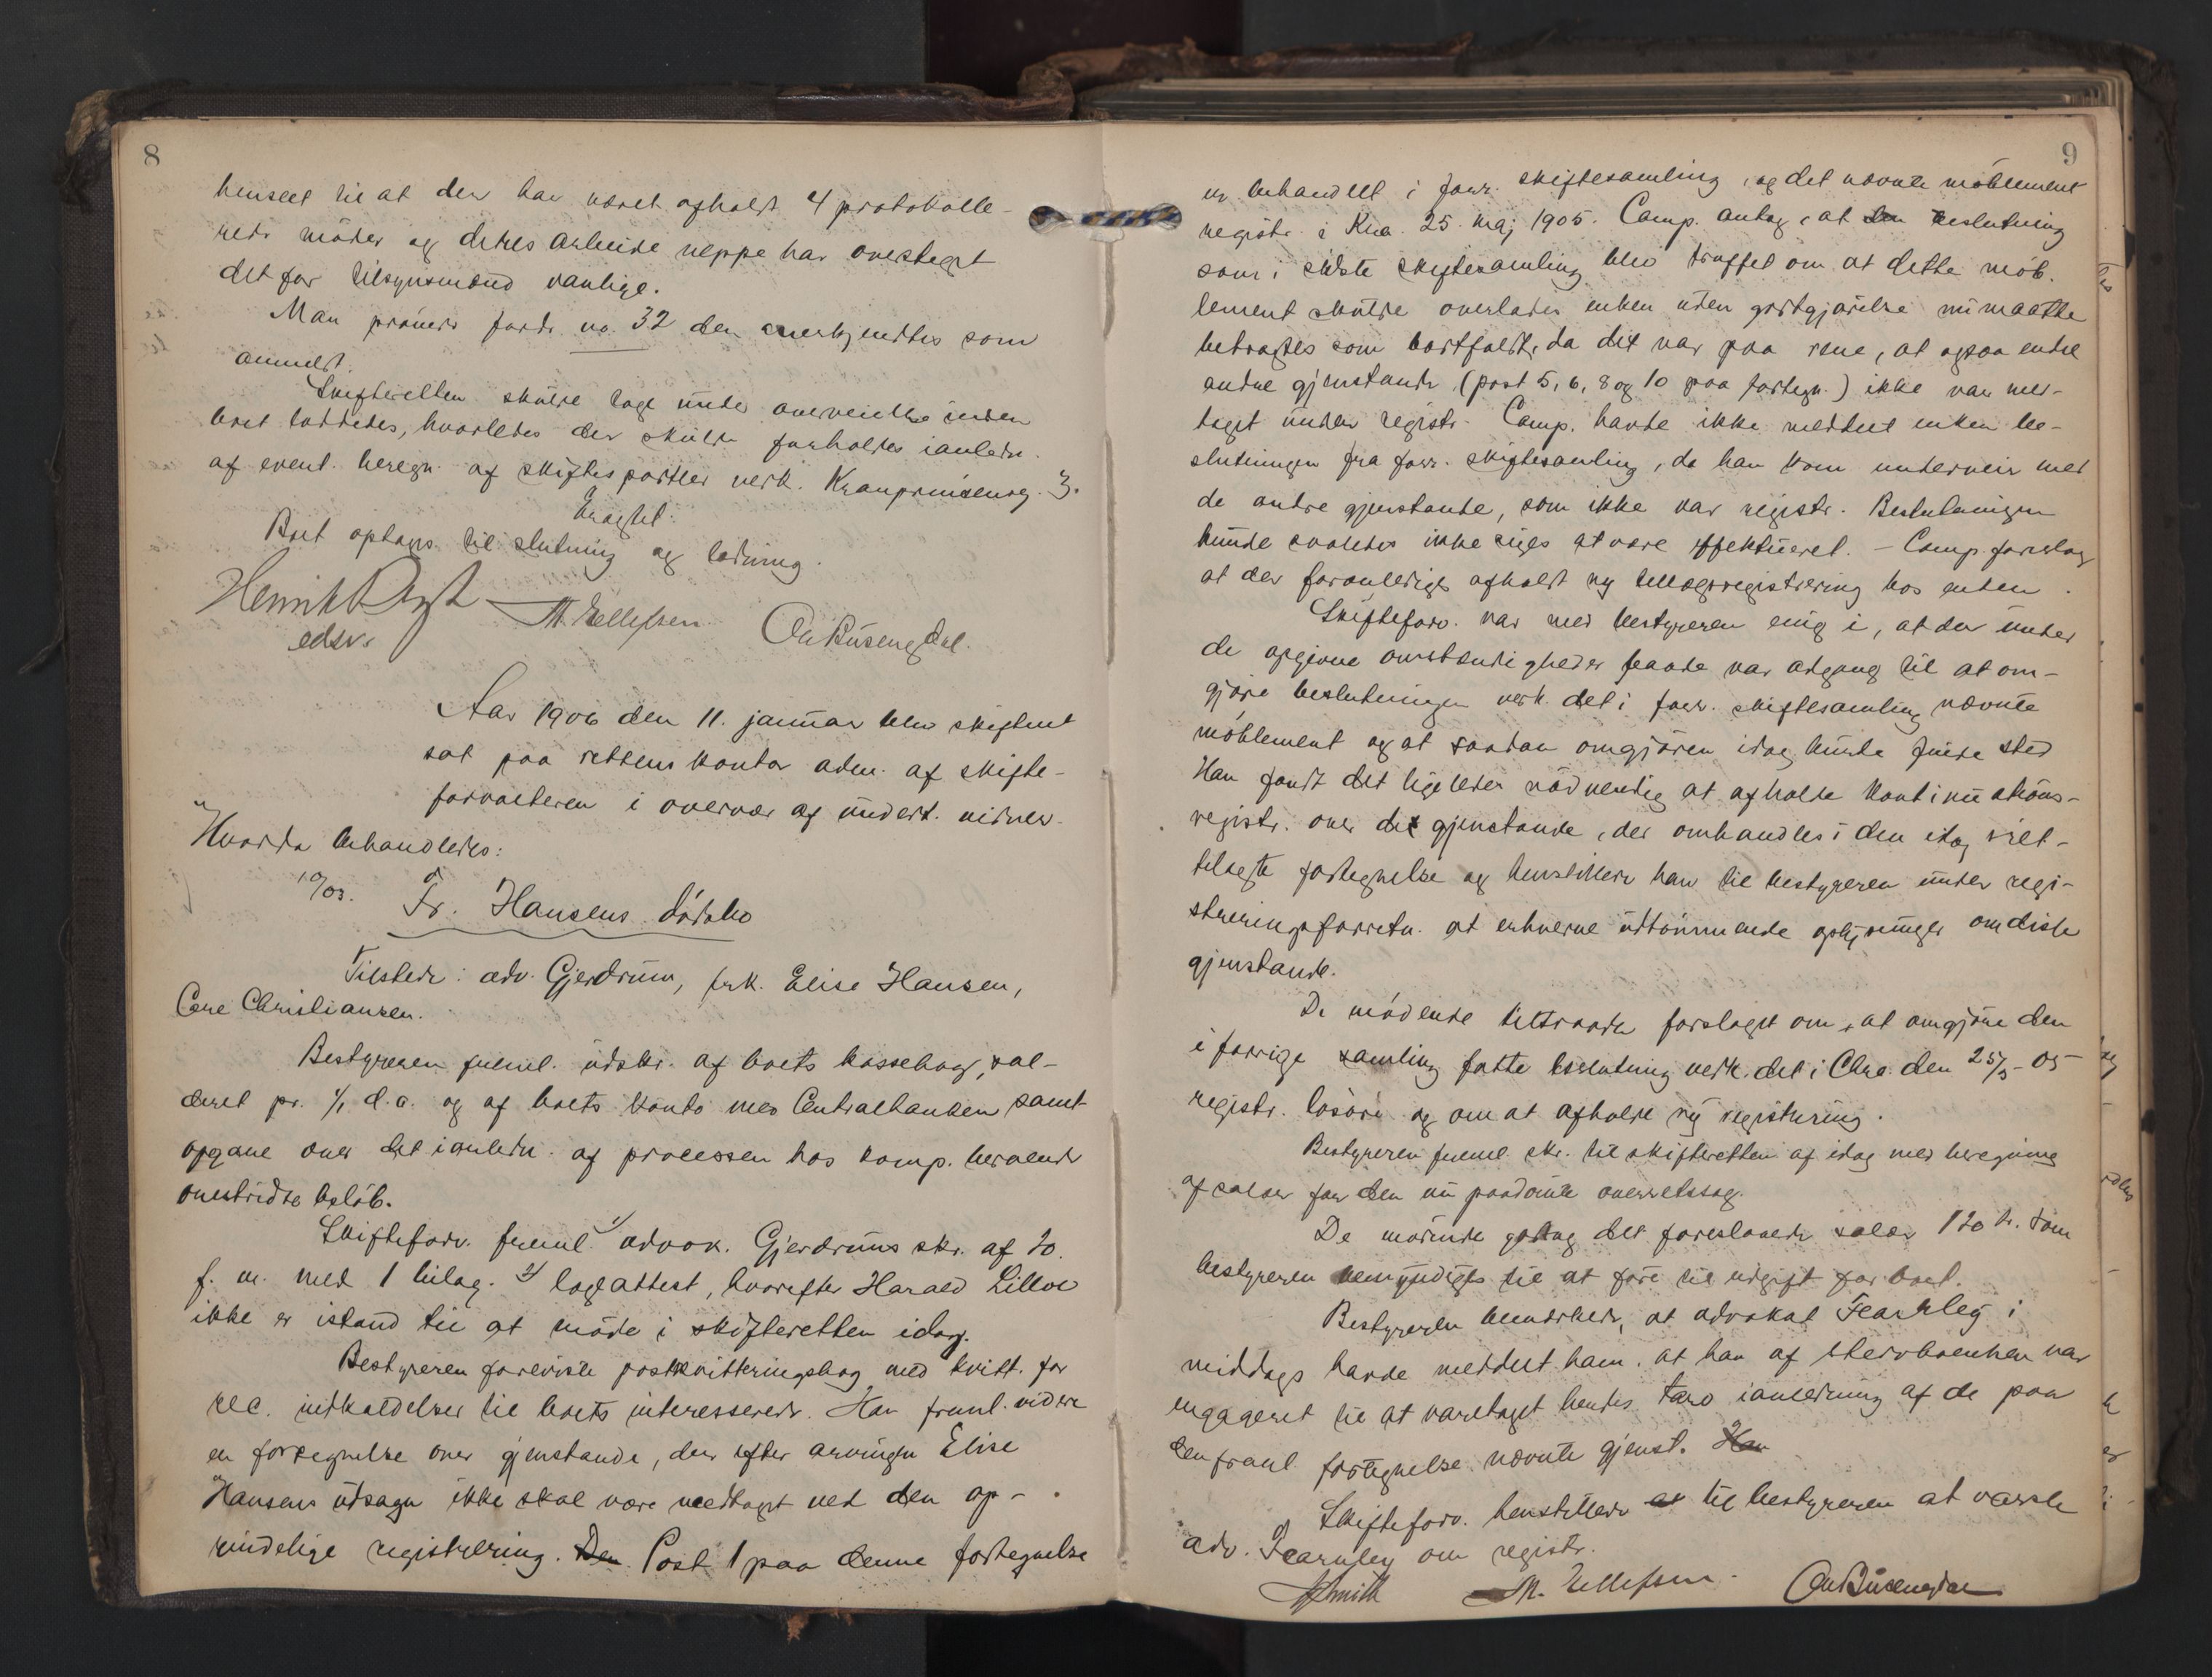 8
henseet til at der har været afholdt 4 protokolle-
rede møder og deres arbeide neppe har oversteget
det for tilsynsmænd vanlige.
Man prøvede fordr. no. 32 der anerkjendtes som
anmeldt.
Skifteretten skulde tage under overveielse inden
boet sluttedes, hvorledes der skulde forholdes i anledn.
af event. beregn. af skiftesportler vedk. Kronprindsensg. 3.
Eragtet:
Boet optages til slutning og lodning.
Henrik
edsv. M. Ellefsen Chr Busengdal.
Aar 1906 den 11. januar blev skifteret
sat paa rettens kontor adm. af skifte-
forvalteren i overvær af undert. vidner.
Hvorda behandledes:
10/03. Fr. Hansens dødsbo
Tilstede: adv. Gjerdrum, frk. Elise Hansen,
Christiansen.
Bestyreren freml. udskr. af boets kassebog, sal-
deret pr. 1/1 d.a. og af boets konto med Centralbanken samt
opgave over det i anledn. af processen hos komp. beroende
omstridte beløb.
Skifteforv. freml. 1/ advok. Gjerdrums skr. af 20.
f. m. med 1 bilag. 2/ lægeattest, hvorefter Harald Lilloe
ikke er istand til at møde i skifteretten idag.
Bestyreren foreviste postkvitteringsbog med kvitt. for
rec. indkaldelser til boets interesserede. Han freml. videre
en fortegnelse over gjenstande, der efter arvingen Elise
Hansens udsagn ikke skal være medtaget ved den op-
rindelige registrering. Den Post 1 paa denne fortegnelse
9
er behandlet i forr. skiftesamling, og det nævnte møblement
registr. i Kra. 25. maj 1905. Comp. antog, at den beslutning
som i sidste skiftesamling blev truffet om at dette møb-
lement skulde overlades enken uden godtgjørelse nu maatte
betragtes som bortfaldt, da det var paa rene, at ogsaa endel
andre gjenstande (post 5, 6, 8 og 10 paa fortegn.) ikke var med-
taget under registr. Comp. havde ikke meddelt enken be-
slutningen fra forr. skiftesamling, da han kom underveir med
de andre gjenstande, som ikke var registr. Beslutningen
kunde saaledes ikke siges at være effektueret. – Comp. foreslog
at der foranlediges afholdt ny tillægsregistrering hos enken.
Skifteforv. var med bestyreren enig i, at der under
de opgivne omstændigheder havde var adgang til at om-
gjøre beslutningen vedk. det i forr. skiftesamling nævnte
møblement og at saadan omgjøren idag kunde finde sted
Han fandt det ligeledes nødvendig at afholde kontinuations-
registr. over de gjenstande, der omhandles i den idag ret-
telagte fortegnelse og henstillede han til bestyreren under regi-
streringsforretn. at erhverve udtømmende oplysninger om disse
gjenstande.
De mødende tiltraadte forslaget om, at omgjøre den
i forrige samling fatte beslutning vedk. det i Chra. den 25/5-05
registr. løsøre og om at afholde ny registrering.
Bestyreren freml. skr. til skifteretten af idag med beregning
af salær for den nu paadømte overretssag.
De mødende godtog det foreslaaede salær 120 kr. som
bestyreren bemyndiges til at føre til udgift for boet.
Bestyreren bemærkede, at advokat Fearnley i
middags havde meddelt ham, at han af sterboenken var
engageret til at varetaget hendes tarv i anledning af de paa
den freml fortegnelse nævnte gjenst. Han
Skifteforv. henstillede at til bestyreren at varsle
adv. Fearnley om registr.
Smith M. Ellefsen. Chr Busengdal